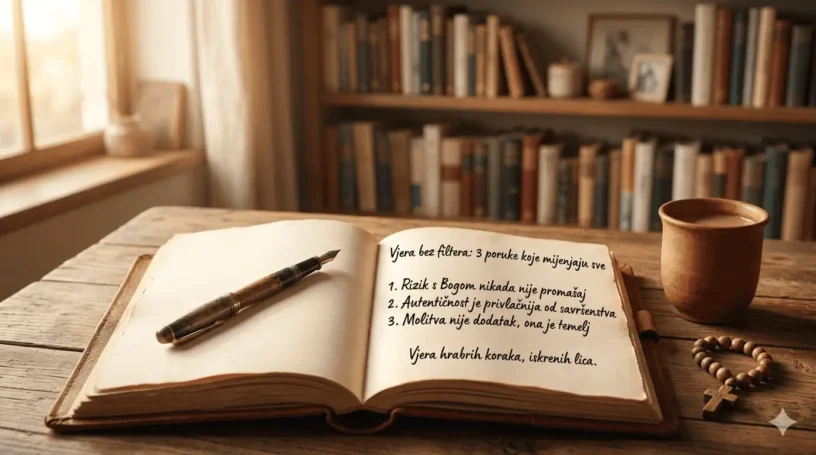 Vjera bez filtera: 3 poruke koje mijenjaju sve
1. Rizik s Bogom nikada nije promašaj
2. Autentičnost je privlačnija od savršenstva
3. Molitva nije dodatak, ona je temelj
Vjera hrabrih koraka, iskrenih lica.